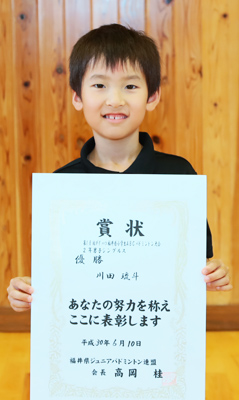 賞状
優勝
川田 琉斗
あなたの努力を称え
ここに表彰します
平成30年6月10日
福井県ジュニアバドミントン連盟
会長 高岡 桂